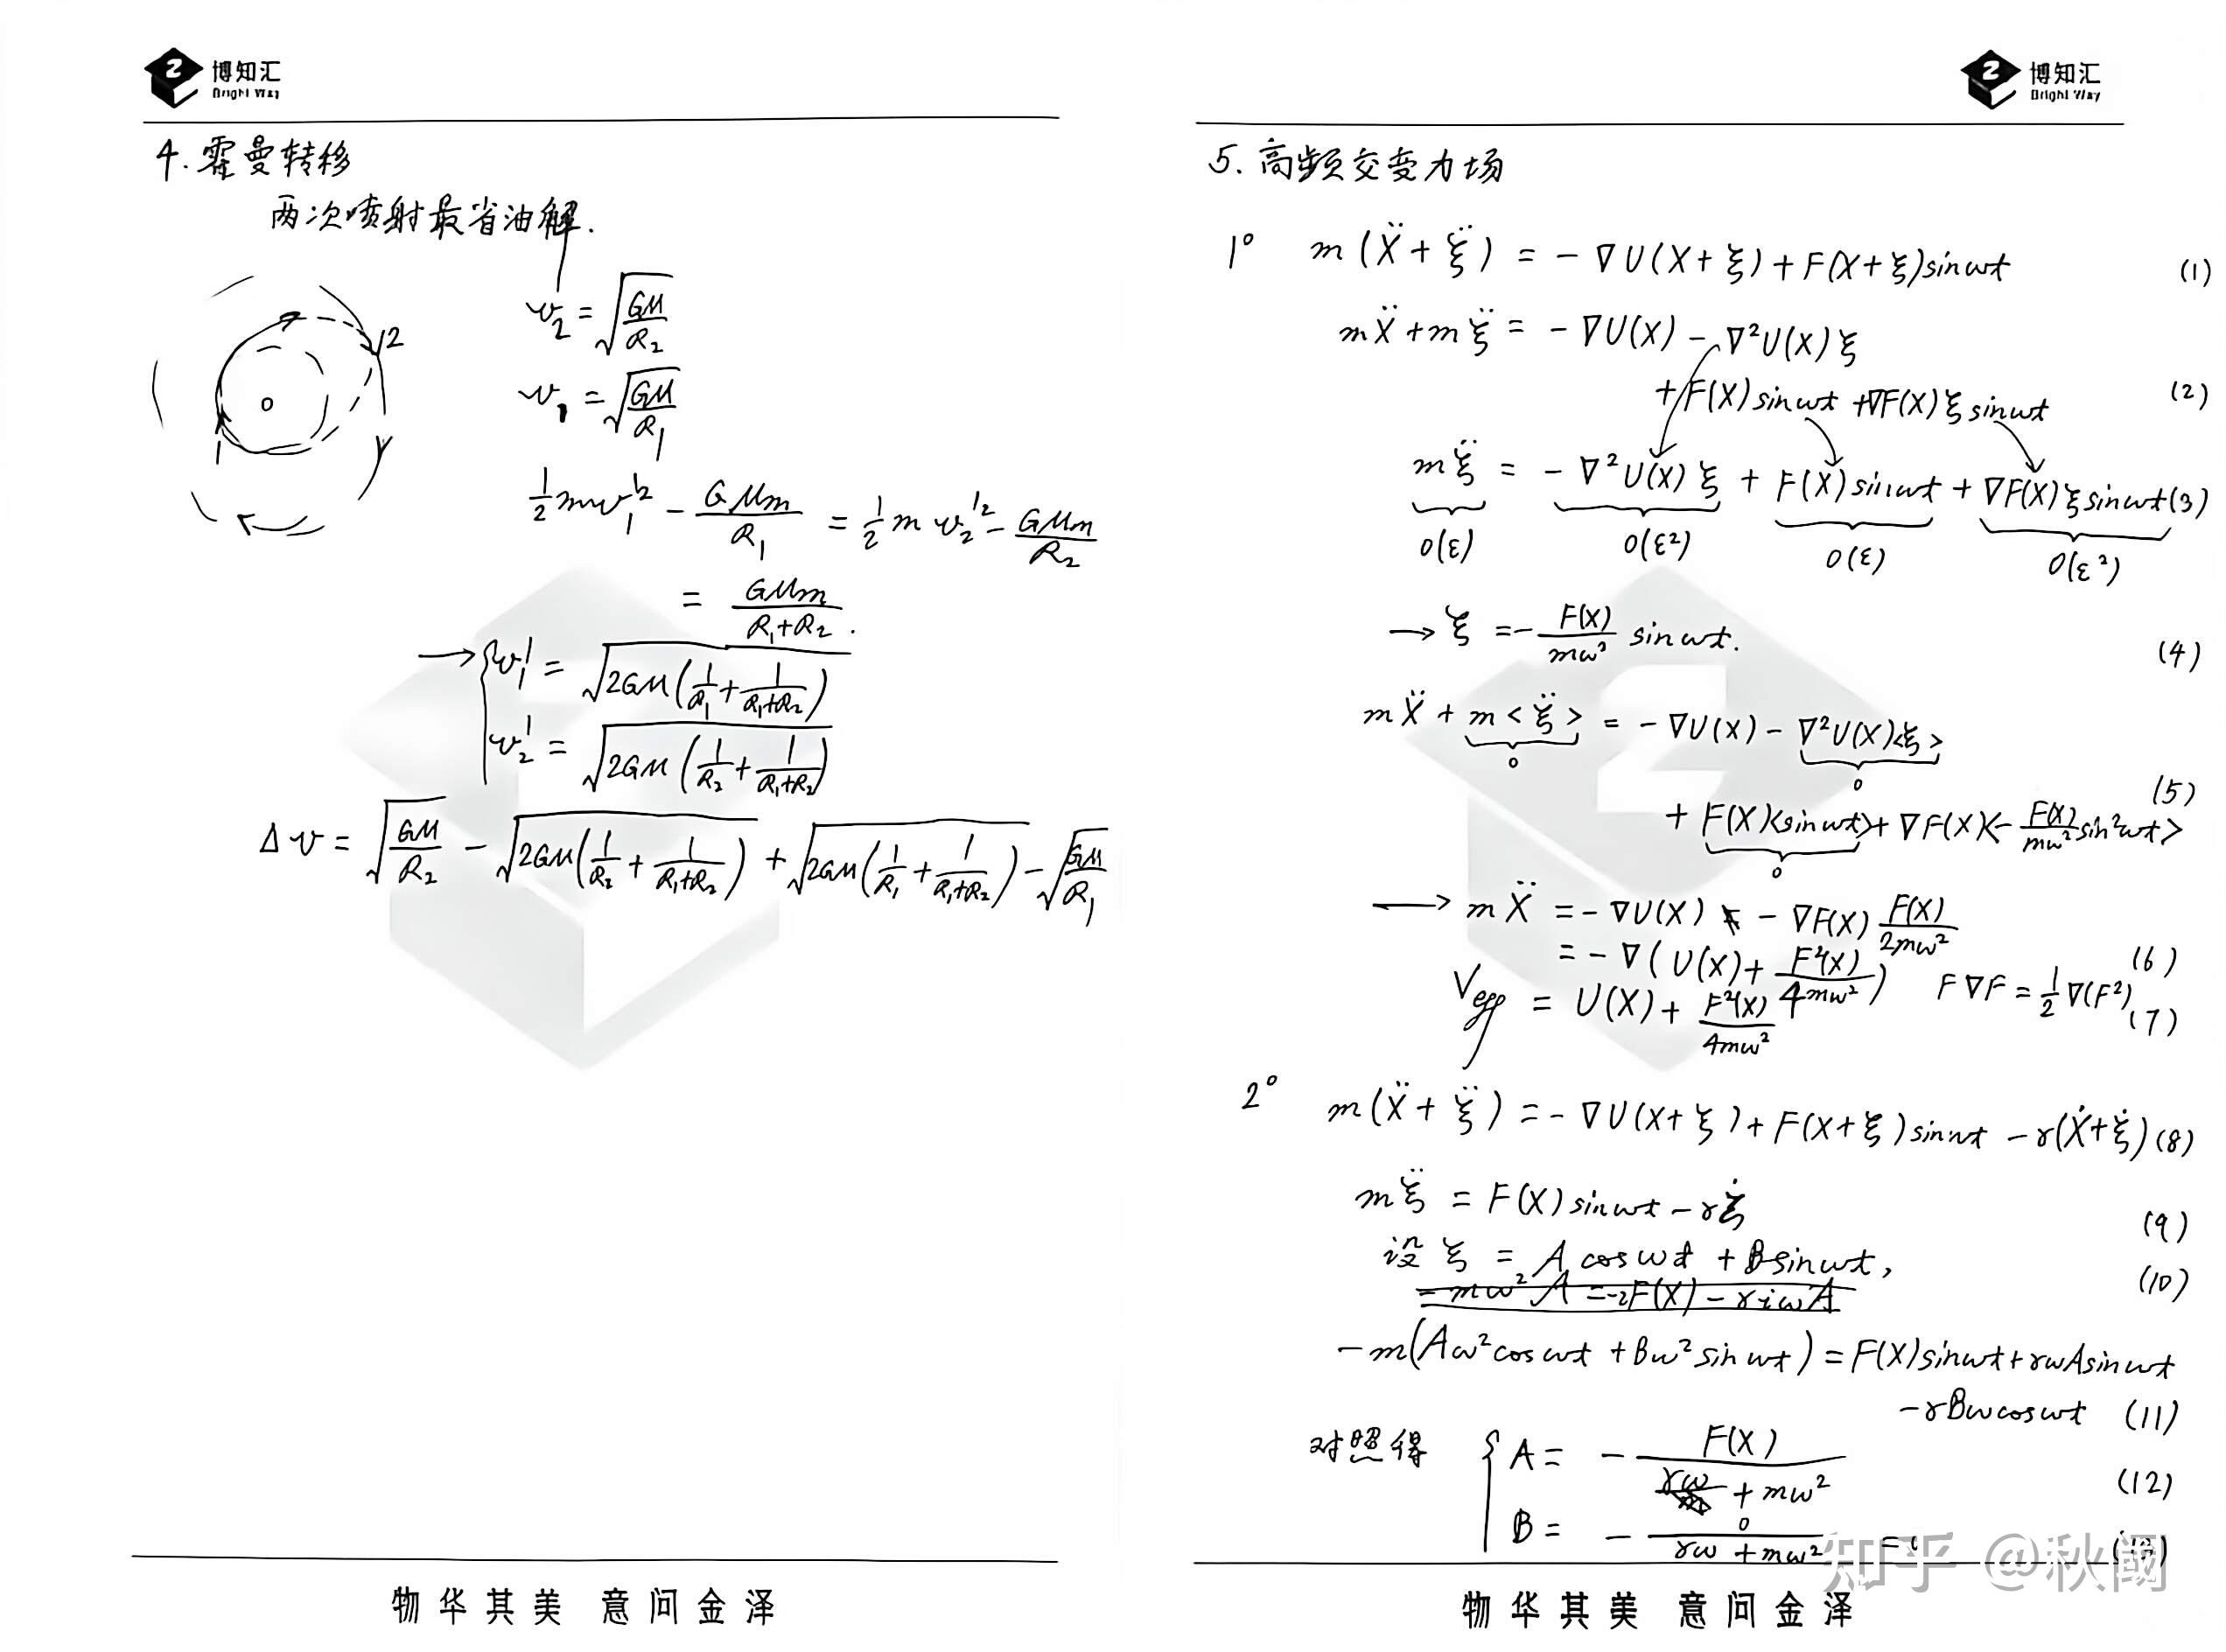 博知汇
Bright Way
4. 霍曼转移
两次喷射最省油解.
0
1
2
v₂ = √(GM/R₂)
v₁ = √(GM/R₁)
½mv₁'² - GMm/R₁ = ½mv₂'² - GMm/R₂
= GMm/(R₁+R₂).
→ { v₁' = √(2GM(1/R₁ + 1/(R₁+R₂)))
v₂' = √(2GM(1/R₂ + 1/(R₁+R₂)))
Δv = √(GM/R₂) - √(2GM(1/R₂ + 1/(R₁+R₂))) + √(2GM(1/R₁ + 1/(R₁+R₂))) - √(GM/R₁)
物华其美 意问金泽
博知汇
Bright Way
5. 高频交变力场
1° m(Ẍ + ξ̈) = -∇U(X+ξ) + F(X+ξ)sinωt (1)
mẌ + mξ̈ = -∇U(X) - ∇²U(X)ξ
+ F(X)sinωt + ∇F(X)ξsinωt (2)
mξ̈ = -∇²U(X)ξ + F(X)sinωt + ∇F(X)ξsinωt (3)
O(ε) O(ε²) O(ε) O(ε²)
→ ξ = -F(X)/mω² sinωt. (4)
mẌ + m<ξ̈> = -∇U(X) - ∇²U(X)<ξ>
0 0
+ F(X)<sinωt> + ∇F(X)<-F(X)/mω² sin²ωt> (5)
0
→ mẌ = -∇U(X) - ∇F(X) F(X)/2mω²
= -∇(U(X) + F²(X)/4mω²) F∇F = ½∇(F²) (6)
V_eff = U(X) + F²(X)/4mω² (7)
2° m(Ẍ + ξ̈) = -∇U(X+ξ) + F(X+ξ)sinωt - γ(Ẋ+ξ̇) (8)
mξ̈ = F(X)sinωt - γξ̇ (9)
设 ξ = A cosωt + B sinωt, (10)
-mω²A = -F(X) - γiωA
-m(Aω²cosωt + Bω²sinωt) = F(X)sinωt + γωAsinωt
- γBωcosωt (11)
对照得 { A = - F(X)/(γω + mω²) (12)
B = - 0/(γω + mω²) = 0 (13)
知乎 @秋阈
物华其美 意问金泽